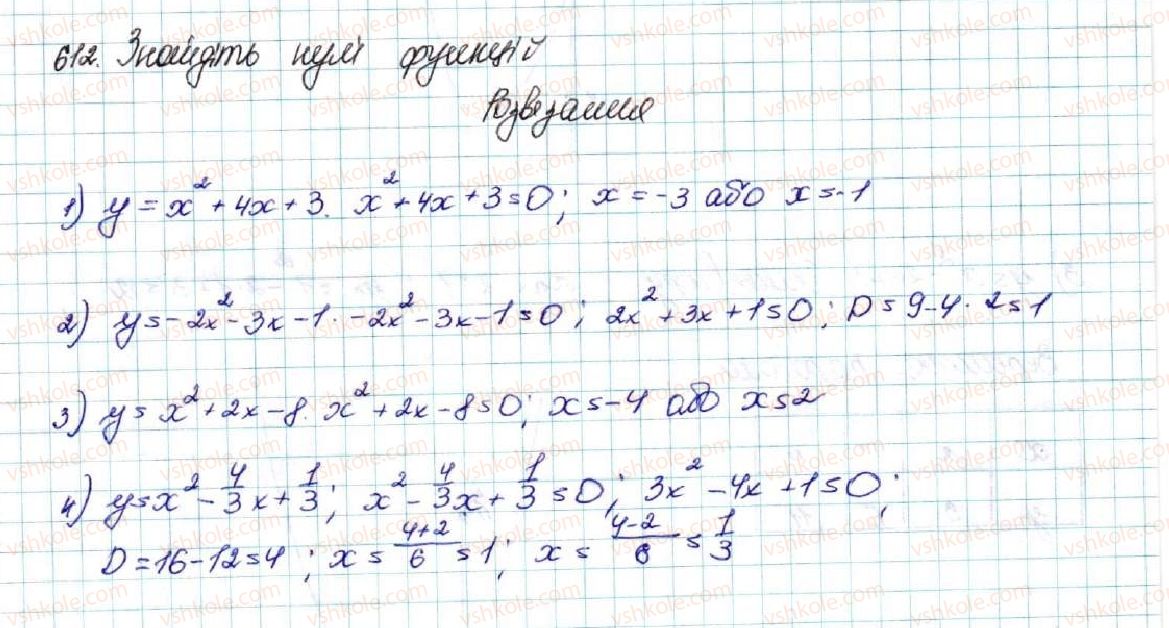 612. Знайдіть нулі функцій
Розвязання
1) y = x² + 4x + 3. x² + 4x + 3 = 0; x = -3 або x = -1
2) y = -2x² - 3x - 1. -2x² - 3x - 1 = 0; 2x² + 3x + 1 = 0; D = 9 - 4 · 2 = 1
3) y = x² + 2x - 8. x² + 2x - 8 = 0; x = -4 або x = 2
4) y = x² - 4/3 x + 1/3; x² - 4/3 x + 1/3 = 0; 3x² - 4x + 1 = 0;
D = 16 - 12 = 4; x = (4+2)/6 = 1; x = (4-2)/6 = 1/3
vshkole.com